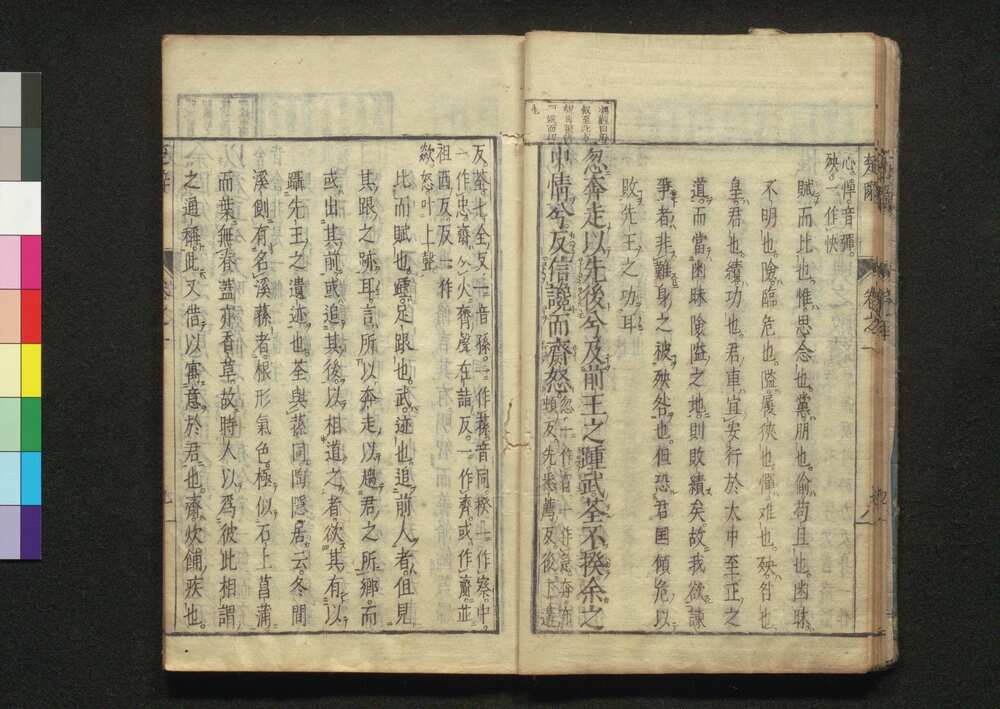 心憚音殫
殃一作怏
賦而比也惟思念也黨朋也偷苟且也幽昧
不明也險臨危也隘履狹也憚难也殃咎也
皇君也績功也君車宜安行於大中至正之
道而當幽昧險隘之地則敗績矣故我欲諫
爭者非難身之被殃咎也但恐君国傾危以
敗先王之功耳
忽奔走以先後兮及前王之踵武荃不揆余之
中情兮反信讒而齋怒
反荃七全反一音孫一作蓀音同揆一作察中
一作忠齋
祖西反
欬怒叶上聲
比而賦也踵足跟也武迹也追前人者但見
其跟之跡耳言所以奔走以趨君之所鄉而
或出其前或追其後以相道之者欲其有以
躡先王之遺迹也荃與蓀同陶隱居云冬間
溪側有名溪蓀者根形氣色極似石上菖蒲
而葉無脊蓋亦香草故時人以爲彼此相謂
之通稱此又借以寓意於君也齋炊餔疾也